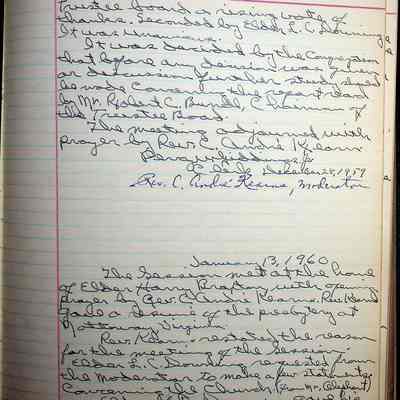 Trustee board a rising vote of
thanks. Seconded by Elder L. C. Downing
It was unanimous.
It was decided by the Congregation
that before any decision was given
or discussion further study should
be made concerning the report read
by Mr. Robert C. Bundl, Chairman of
the Trustee Board.
The meeting adjourned with
prayer by Rev. C. André Kearns
Clerk December 28, 1959
Rev. C. André Kearns, Moderator
January 13, 1960
The Session met at the home
of Elder Harry Braxton, with opening
prayer by Rev. C. André Kearns. Rev.
gave a resume of the presbytery at
Nottoway Virginia
Rev. restated the reason
for the meeting of the session
Elder L. C. request from
the Moderator to make a few statements
concerning the Church